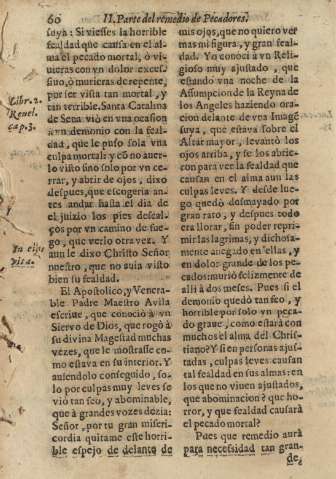 60 II. Parte del remedio de Pecadores,
suya: Si viesses la horrible
fealdad que causa en el al-
ma el pecado mortal, ò vi-
uieras con vn dolor exces-
siuo, ò murieras de repente,
por ser vista tan mortal, y
tan terrible. Santa Catalina
de Sena viò en vna ocasion
a vn demonio con la feal-
dad, que le puso sola vna
culpa mortal: y cõ no auer-
lo visto sino solo por vn ce-
rrar, y abrir de ojos, dixo
despues, que escogeria an-
tes andar hasta el dia de
el juizio los pies descal-
ços por vn camino de fue-
go, que verlo otra vez. Y
aun le dixo Christo Señor
nuestro, que no auia visto
bien su fealdad.
El Apostolico, y Venera-
ble Padre Maestro Avila
escriue, que conociò a vn
Siervo de Dios, que rogò à
su divina Magestad muchas
vezes, que le mostrasse co-
mo estava en su interior. Y
auiendolo conseguido, so-
lo por culpas muy leves se
viò tan feo, y abominable,
que à grandes vozes dezia:
Señor, por tu gran miseri-
cordia quitame este horri-
ble espejo de delante de
Libr. 2.
Reuel.
cap. 3.
In eius
vita.
mis ojos, que no quiero ver
mas mi figura, y gran feal-
dad. Yo conoci a vn Reli-
gioso muy ajustado, que
estando vna noche de la
Assumpcion de la Reyna de
los Angeles haziendo ora-
cion delante de vna Imagẽ
suya, que estava sobre el
Altar mayor, levantò los
ojos arriba, y se los abrie-
ron para ver la fealdad que
causan en el alma aun las
culpas leves. Y desde lue-
go quedò desmayado por
gran rato, y despues todo
era llorar, sin poder repri-
mir las lagrimas, y dichosa-
mente anegado en ellas, y
en dolor grande de los pe-
cados: muriò felizmente de
alli à dos meses. Pues si el
demonio quedò tan feo, y
horrible por solo vn peca-
do graue, como estarà con
muchos el alma del Chris-
tiano? Y si en personas ajus-
tadas, culpas leves causan
tal fealdad en sus almas: en
los que no viuen ajustados,
que abominacion è que ho-
rror, y que fealdad causarà
el pecado mortal?
Pues que remedio aurà
para necessidad tan gran-
de,